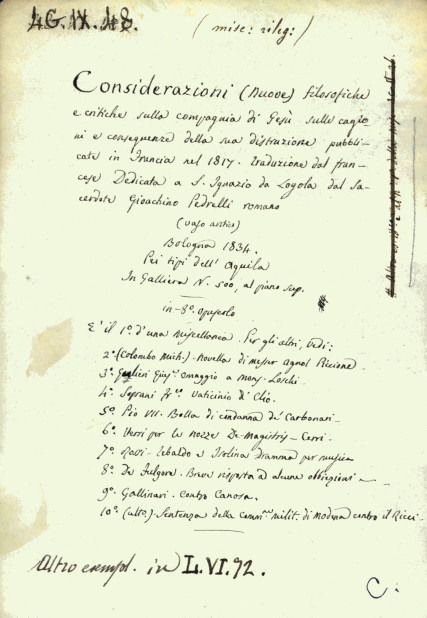 4G. IX. 48.
(misc: rileg:)
Considerazioni (nuove) filosofiche
e critiche sulla compagnia di Gesù sulle cagio-
ni e conseguenze della sua distruzione pubbli-
cate in Francia nel 1817. traduzione dal fran-
cese Dedicata a S. Ignazio da Loyola dal Sa-
cerdote Gioachino Pedrelli romano
(vaso antico)
Bologna 1834.
Pei tipi dell' Aquila
In Galliera N. 500, al piano sup.
in-8º. opuscolo
E' il 1º. d'una miscellanea. Per gli altri, Vedi:
2º. (Colombo Mich.) - Novella di messer Agnol Piccione
3º. Giuse. omaggio a Mons. Loschi.
4º. Soprani Vaticinio di Clio.
5º. Pio VII. Bolla di condanna de' Carbonari.
6º. Versi per le nozze De-Magistris - Cerri.
7º. Rossi - Tebaldo e Isolina Dramma per musica
8º. De Fulgore. Breve risposta ad alcune obbiezioni
9º. Gallinari - Contro Canosa.
10º. (ulto.) - Sentenza della comm.ne milit. di Modena contro il Ricci.
Altro esempl. in L. VI. 92.
C.